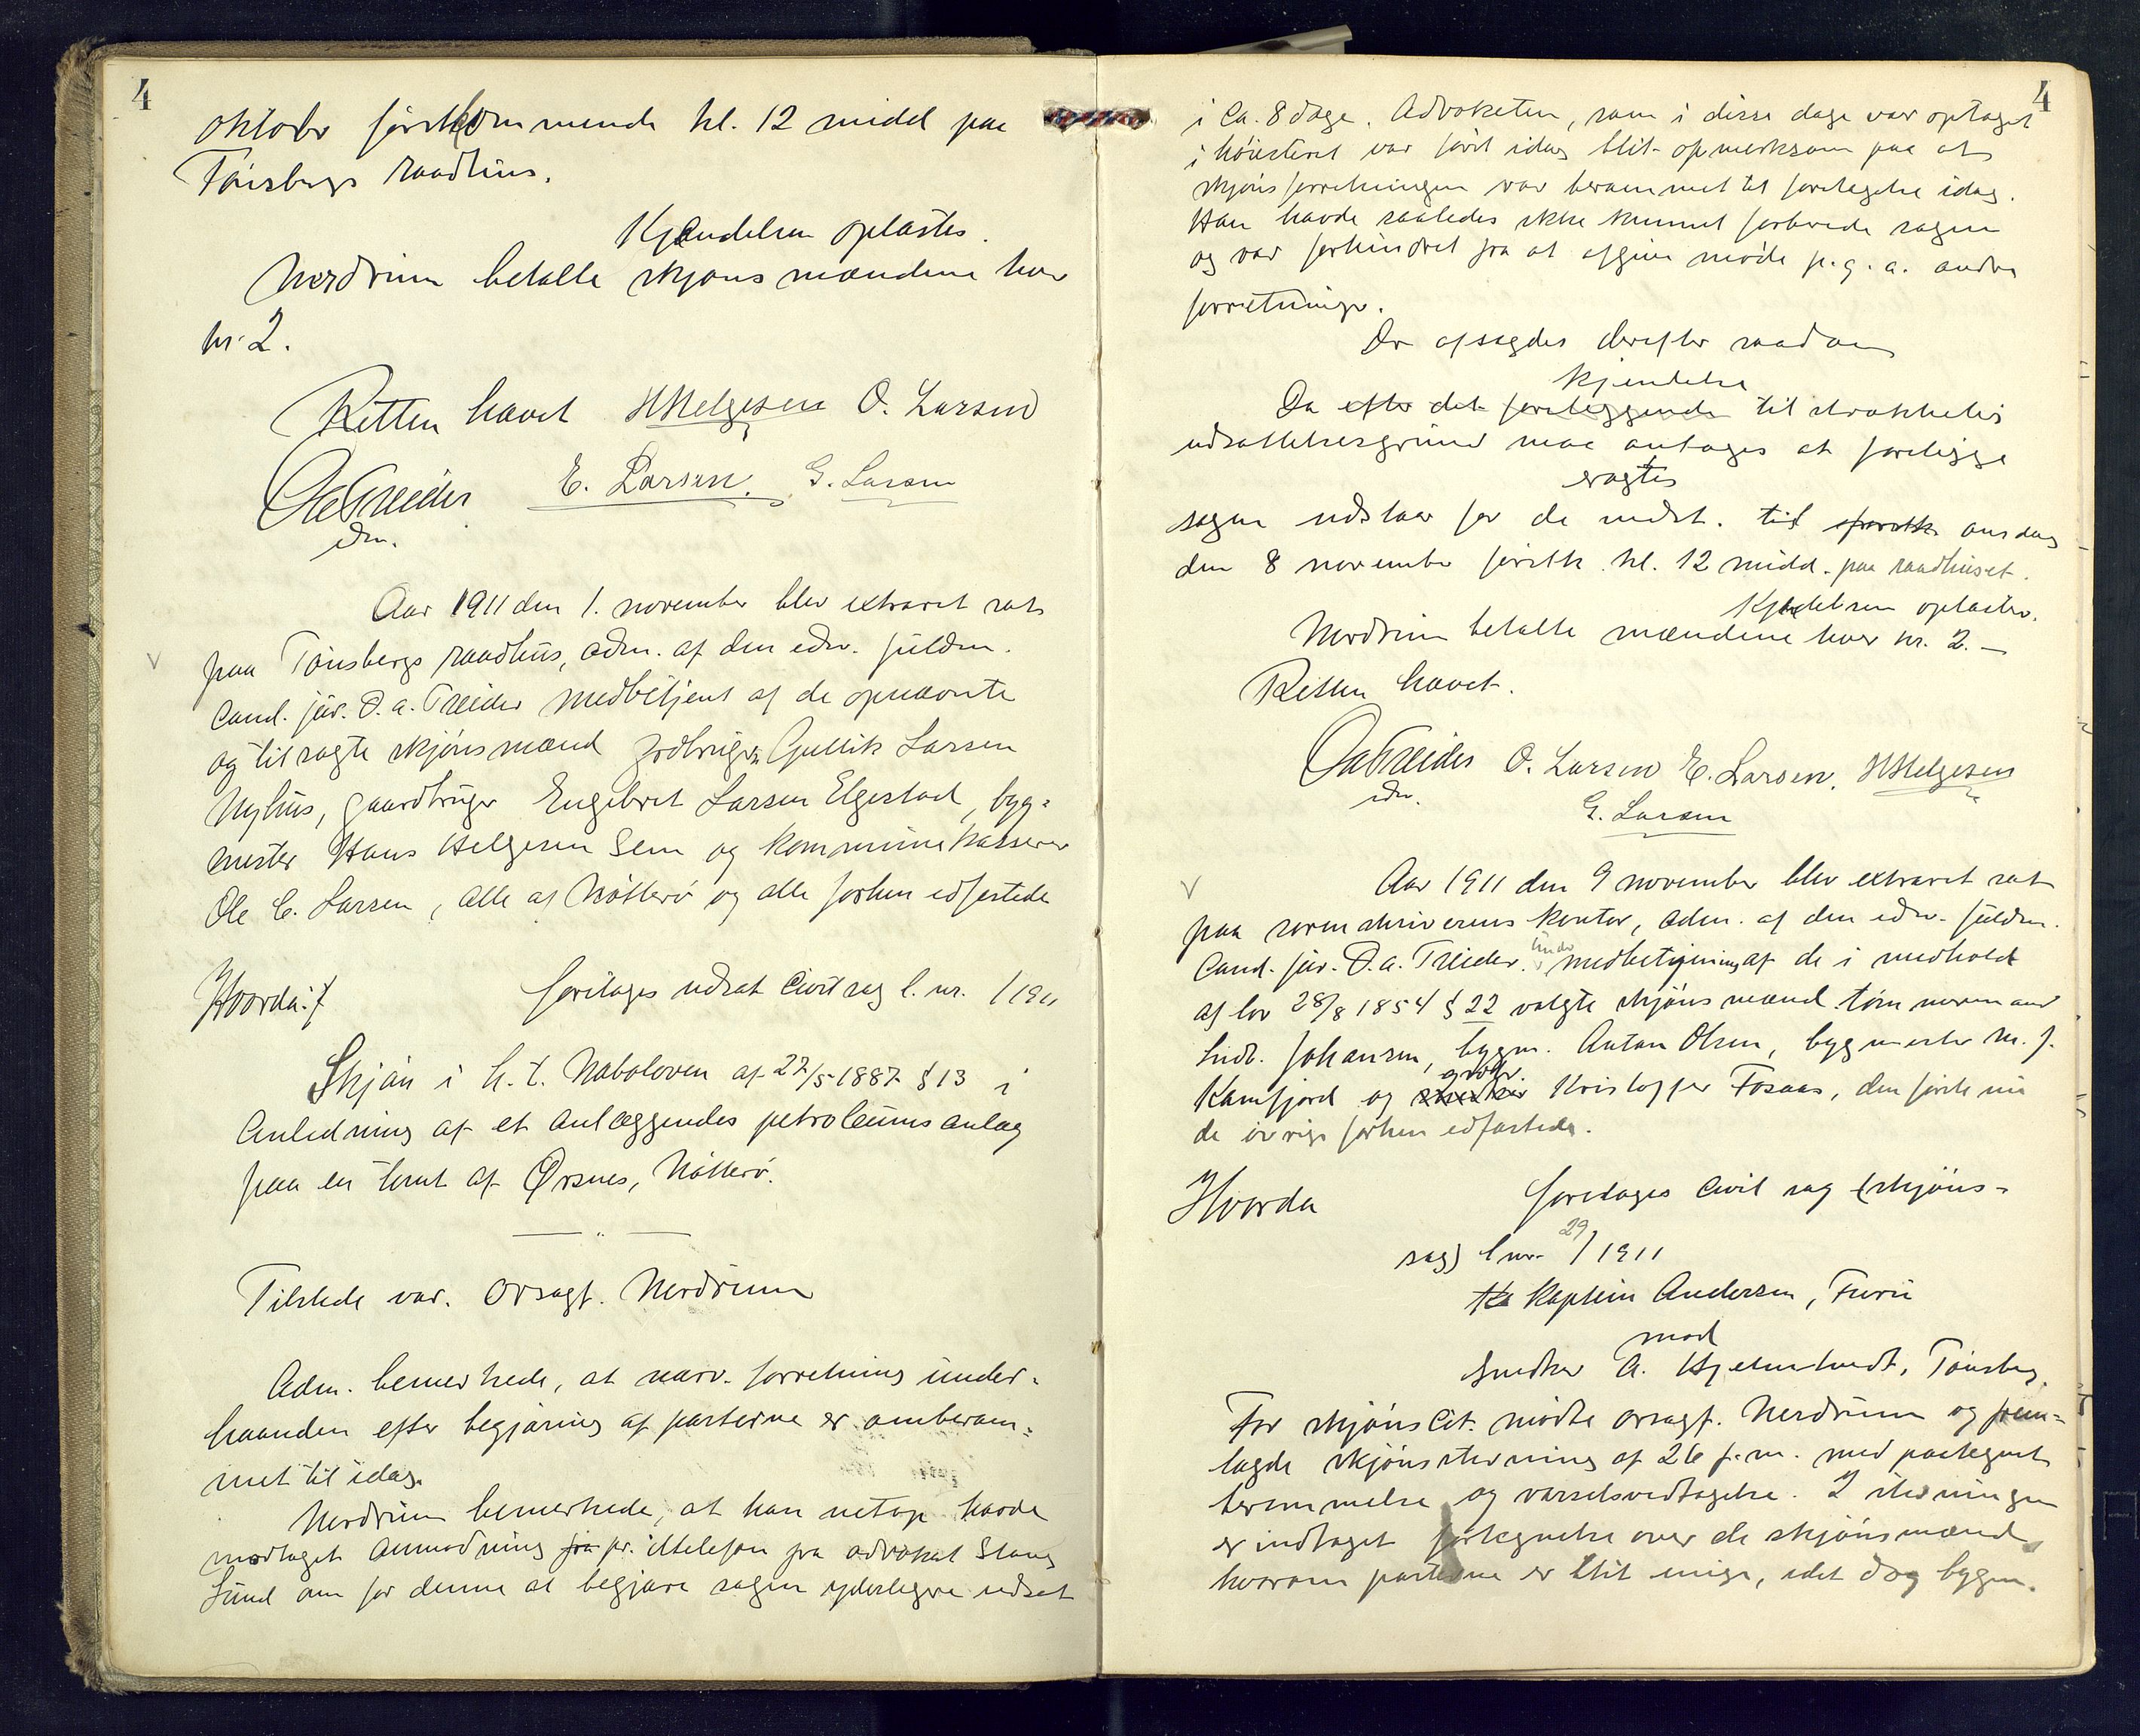 4
oktober førstkommende kl. 12 midd paa
Tønsbergs raadhus.
Kjendelsen oplæstes.
Nerdrum betalte skjønsmændene hver
kr. 2.
Retten hævet HHelgesen O. Larsen
OATreider E. Larsen. G. Larsen
edsv.
Aar 1911 den 1. november blev extraret sat
paa Tønsbergs raadhus, adm. af den edsv. fuldm.
Cand. jur. O. A. Treider medbetjent af de opnævnte
og tilsagte skjønsmænd jrdbruger Gullik Larsen
Nyhus, gaardbruger Engebret Larsen Elgestad, byg=
mester Hans Helgesen Sem og kommunekasserer
Ole C. Larsen, alle af Nøtterø og alle forhen edfæstede
Hvorda:/
foretages udsat Civil sag l. nr. /1911
Skjøn i h. t. Naboloven af 27/5 1887 § 13 i
Anledning af et anlæggendes petroleumsanlæg
paa en tomt af Ørsnes, Nøtterø.
Tilstede var. Orsagf. Nerdrum
Adm. bemerkede, at nærv. forretning under-
haanden efter begjæring af parterne er omberam=
met til idag.
Nerdrum bemerkede, at han netop havde
modtaget anmodning fra pr. iltelefon fra advokat Stang
Lund om for denne at begjære sagen yderligere udsat
4
i Ca. 8 dage. Advokaten, som i disse dage var optaget
i høiesteret var først idag blit opmerksom paa at
skjønsforretningen var berammet til foretagelse idag.
Han havde saaledes ikke kunnet forberede sagen
og var forhindret fra at afgive møde p. g. a. andre
forretninger.
Der afsagdes derefter saadan
kjendelse
Da efter det foreliggende tilstrækkelig
udsættelsesgrund maa antages at foreligge
eragtes
sagen udstaar for de nedst. til førstk onsdag
den 8 november førstk. kl. 12 midd. paa raadhuset.
Kjendelsen oplæstes.
Nerdrum betalte mændene hver kr. 2. —
Retten hævet.
OATreider O. Larsen E. Larsen. HHelgesen
edsv.
G. Larsen
Aar 1911 den 9 november blev extraret sat
paa sorenskriverens kontor, adm. af den edsv. fuldm.
Cand. jur. O. A. Treider. under medbetjening af de i medhold
af lov 28/8 1854 § 22 valgte skjønsmænd tømmermand
Ludv. Johansen, bygm. Anton Olsen, bygmester M. J.
Kamfjord og snedker Kristoffer Fosaas, den første nu
de øvrige forhen edfæstede.
Hvorda
foretages Civil sag (skjøns-
sag) l nr. 29/1911
Ka Kaptein Andersen, Furu
mod
Snedker A. Hjelmtvedt, Tønsberg.
For skjønscit. mødte orsagf. Nerdrum og frem=
lagde skjønsstevning af 26 f. m. med paategnet
berammelse og varselsvedtagelse. I stevningen
er indtaget fortegnelse over de skjønsmænd
hvorom parterne er blit enige, idet dog bygm.